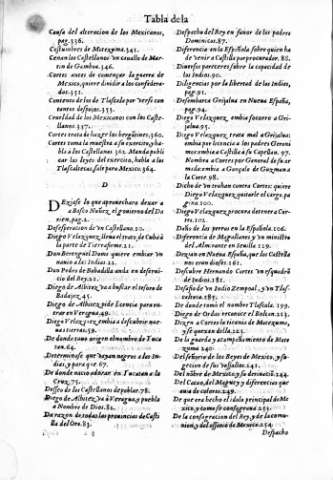 Tabla de la
Causa del alteracion de los Mexicanos,
pag.336.
Costumbres de Motezuma.341.
Cenan los Castellanos vn cauallo de Martin de Gamboa.346.
Cortes antes de començar la guerra de
Mexico, quiere diuidir a los confederados.351.
Contento de los de Tlascala por verse con
tantos despojos.353.
Crueldad de los Mexicanos con los Castellanos.357.
Cortes trata de hazer los bergãtines.360.
Cortes toma la muestra a su exercito, y habla a los Castellanos 362. Manda publicar las leyes del exercito, habla a los
Tlascaltecas, sale para Mexico 364.
D
Dexase lo que aprouechara
a Basco Nuñez el gouierno del Darien, pag.2.
Desesperacion de vn Castellano.20.
Diego Velazquez, lleua el trato de Cuba à
la parte de Tierrafirme.21.
Don Berenguel Doms quiere embiar vn
nauio a las Indias.22.
Don Pedro de Bobadilla anda en deseruicio del Rey.22.
Diego de Albitez va a buscar el tesoro de
Badajoz.45.
Diego de Albitez pide licencia para entrar en Veragua.49.
Diego Velazquez embia a descubrir nueuas tierras.59.
De donde tuuo origen el nombre de Yucatan.64.
Determinase que vayan negros a las Indias, y para que.67.
De donde nacio adorar en Yucatan a la
Cruz.75.
Desseo de los Castellanos de poblar.78.
Diego de Albitez, va à Veragua, y puebla
a Nombre de Dios.81.
Da razon de todas las prouincias de Castilla del Oro.83.
Despacho del Rey en fauor de los padres
Dominicos.87.
Diferencia en la Española sobre quien ha
de venir a Castilla por procurador.88.
Diuersos pareceres sobre la capacidad de
los Indios.90.
Diligencias por la libertad de los Indios,
pag.91.
Desembarca Grijalua en Nueua España,
pag.94.
Diego Velazquez, embia socorro a Grijalua.95.
Diego Velazquez, trata mal a Grijalua:
embia por licencia a los padres Geronimos: embia a Castilla a su Capellan. 97.
Nombra a Cortes por General de su armada: embia a Gonçalo de Guzman a
la Corte.98.
Dicho de vn truhan contra Cortes: quiere
Diego Velazquez quitarle el cargo. pagina 100.
Diego Velazquez procura detener a Cortes.102.
Daño de los perros en la Española.106.
Diferencia de Magallanes y vn ministro
del Almirante en Seuilla.129.
Dezian en Nueua España, que los Castellanos eran dioses.161.
Descubre Hernando Cortes vn esquadrõ
de Indios.181.
Desafio de vn Indio Zempoal, y vn Tlascalteca.185.
De donde tomò el nombre Tlascala. 199.
Diego de Ordas reconoce el Bolcan.223.
Dizen a Cortes los tesoros de Motezuma,
y se quexan della.225.
De la guarda y acompañamiento de Motezuma 240.
Del señorio de los Reyes de Mexico, y sugecion de sus vassallos.241.
Del nõbre de Mexico, y su derivaciõ.244.
Del Cacao, del Maguey y diferencias que
aura de colores.249.
De que era hecho el idolo principal de Mexico, y como se consagraua.251.
De la consagracion del Rey, y de la comunion, y del assiento de Mexico.254.
Despacho